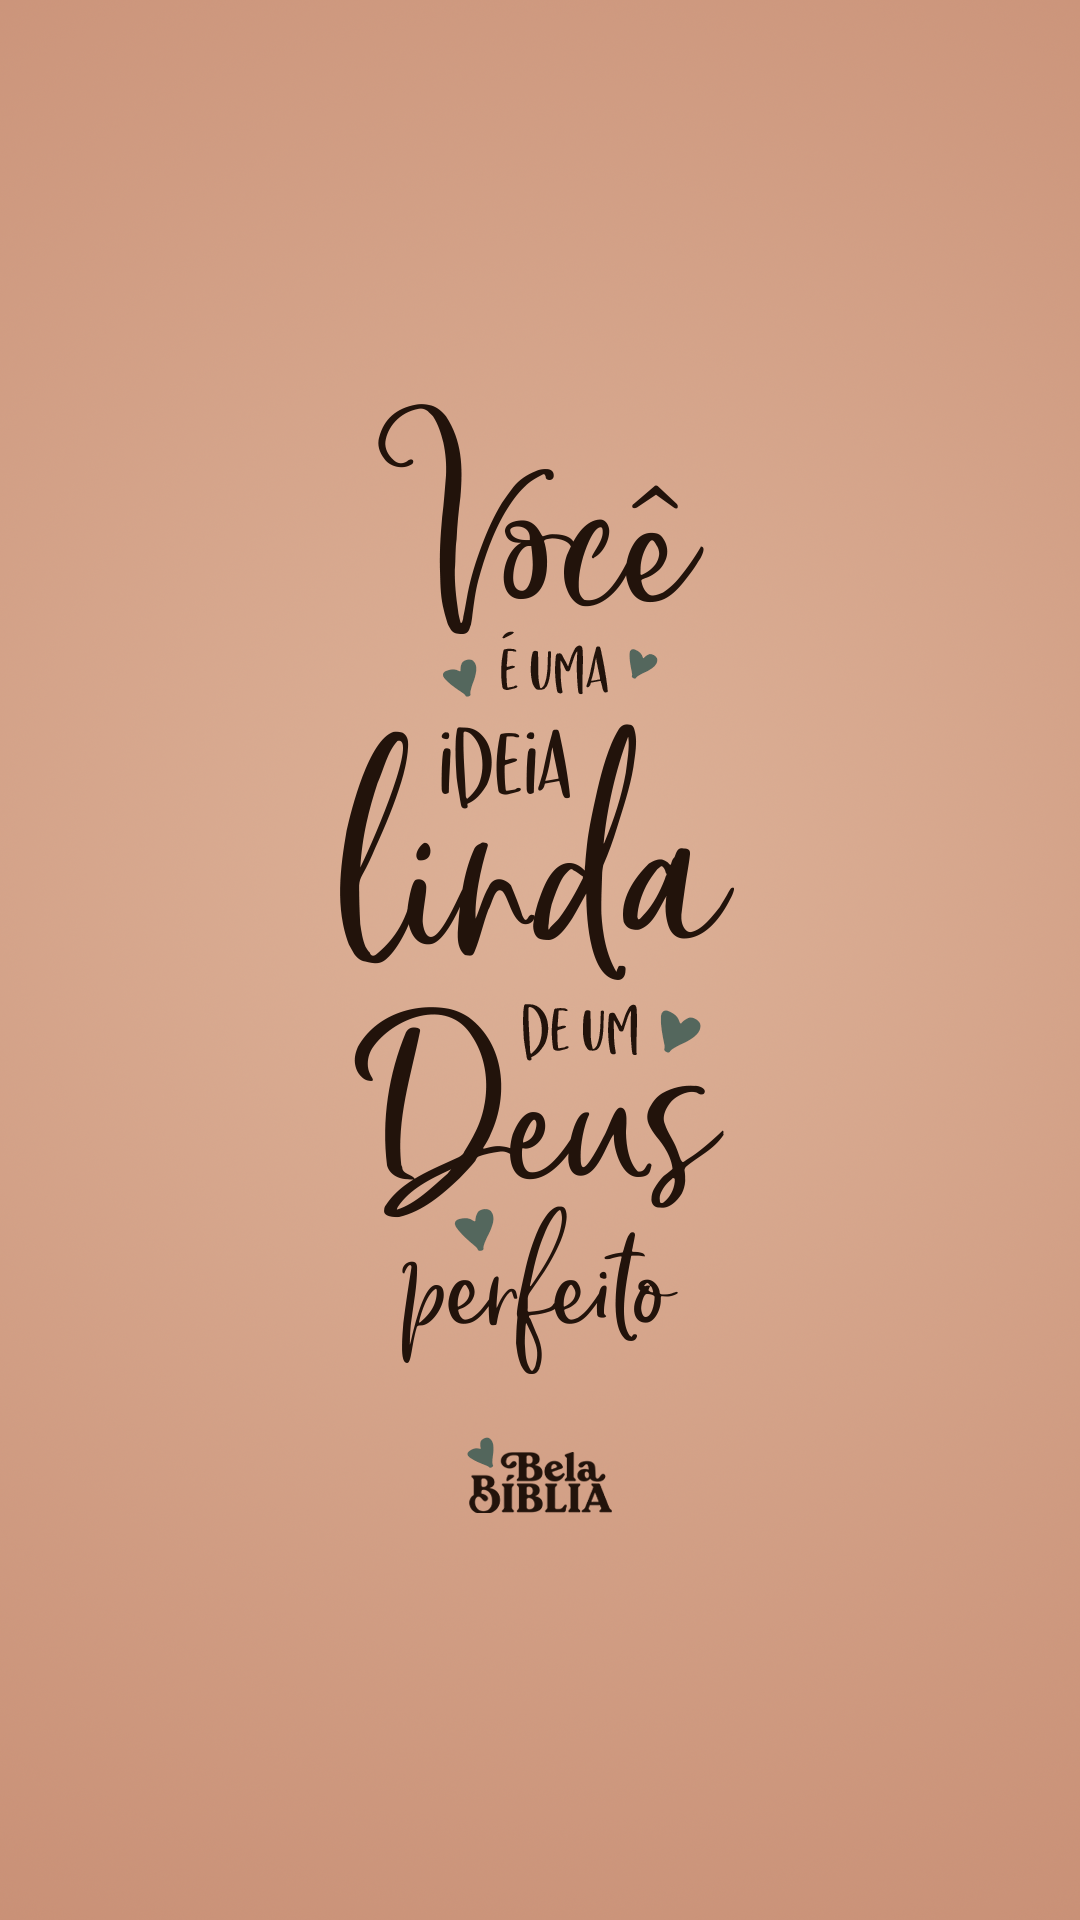 Você
É UMA
iDEiA
linda
DE UM
Deus
perfeito
Bela
BÍBLIA